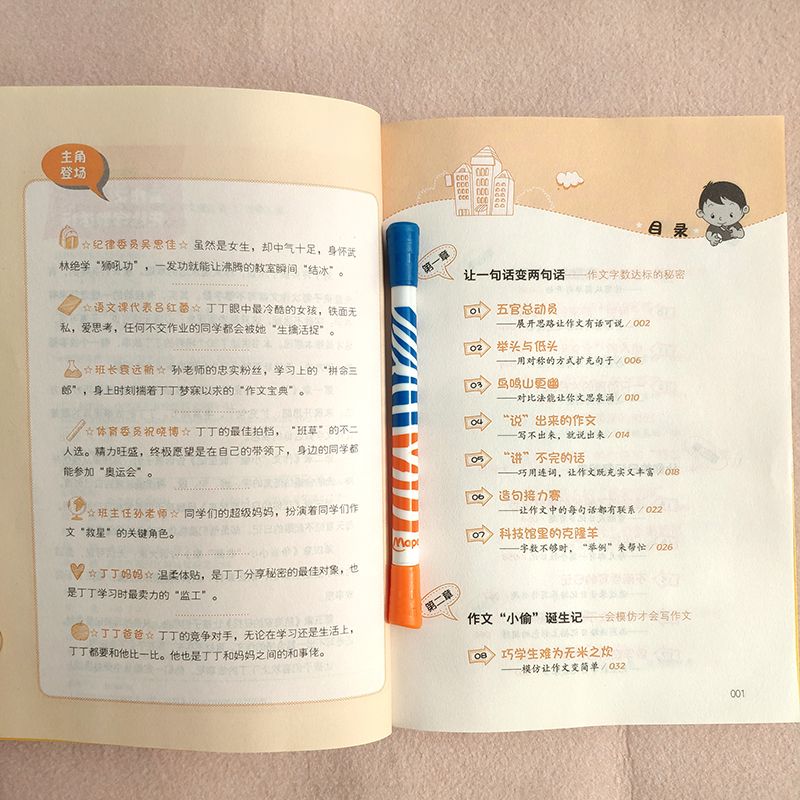 主角
登场
☆纪律委员吴思佳☆ 虽然是女生，却中气十足，身怀武
林绝学“狮吼功”，一发功就能让沸腾的教室瞬间“结冰”。
☆语文课代表吕红蕾☆ 丁丁眼中最冷酷的女孩，铁面无
私，爱思考，任何不交作业的同学都会被她“生擒活捉”。
☆班长袁远航☆ 孙老师的忠实粉丝，学习上的“拼命三
郎”，身上时刻揣着丁丁梦寐以求的“作文宝典”。
☆体育委员祝晓博☆ 丁丁的最佳拍档，“班草”的不二
人选。精力旺盛，终极愿望是在自己的带领下，身边的同学都
能参加“奥运会”。
☆班主任孙老师☆ 同学们的超级妈妈，扮演着同学们作
文“救星”的关键角色。
☆丁丁妈妈☆ 温柔体贴，是丁丁分享秘密的最佳对象，也
是丁丁学习时最卖力的“监工”。
☆丁丁爸爸☆ 丁丁的竞争对手，无论在学习还是生活上，
丁丁都要和他比一比。他也是丁丁和妈妈之间的和事佬。
目录
第一章
让一句话变两句话——作文字数达标的秘密
01 五官总动员
——展开思路让作文有话可说 / 002
02 举头与低头
——用对称的方式扩充句子 / 006
03 鸟鸣山更幽
——对比法能让你文思泉涌 / 010
04 “说”出来的作文
——写不出来，就说出来 / 014
05 “讲”不完的话
——巧用连词，让作文既充实又丰富 / 018
06 造句接力赛
——让作文中的每句话都有联系 / 022
07 科技馆里的克隆羊
——字数不够时，“举例”来帮忙 / 026
第二章
作文“小偷”诞生记——会模仿才会写作文
08 巧学生难为无米之炊
——模仿让作文变简单 / 032
001